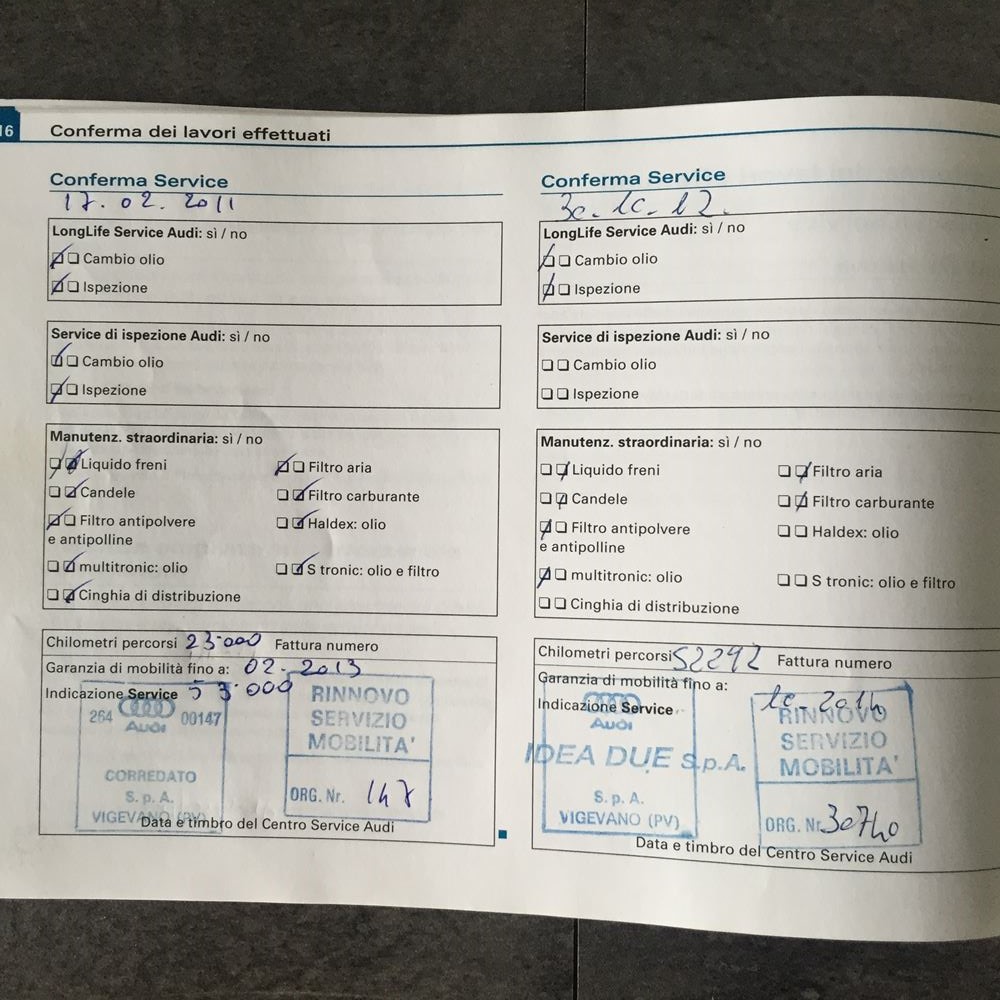 16 Conferma dei lavori effettuati
Conferma Service
17.02.2011
LongLife Service Audi: sì / no
Cambio olio
Ispezione
Service di ispezione Audi: sì / no
Cambio olio
Ispezione
Manutenz. straordinaria: sì / no
Liquido freni
Filtro aria
Candele
Filtro carburante
Filtro antipolvere
e antipolline
Haldex: olio
multitronic: olio
S tronic: olio e filtro
Cinghia di distribuzione
Chilometri percorsi 23.000 Fattura numero
Garanzia di mobilità fino a: 02.2013
Indicazione Service 53.000
264 00147
Audi
CORREDATO
S.p.A.
VIGEVANO (PV)
RINNOVO
SERVIZIO
MOBILITA'
ORG. Nr. 147
Data e timbro del Centro Service Audi
Conferma Service
30.10.12.
LongLife Service Audi: sì / no
Cambio olio
Ispezione
Service di ispezione Audi: sì / no
Cambio olio
Ispezione
Manutenz. straordinaria: sì / no
Liquido freni
Filtro aria
Candele
Filtro carburante
Filtro antipolvere
e antipolline
Haldex: olio
multitronic: olio
S tronic: olio e filtro
Cinghia di distribuzione
Chilometri percorsi 52292 Fattura numero
Garanzia di mobilità fino a:
10-2014
Indicazione Service
Audi
IDEA DUE S.p.A.
S.p.A.
VIGEVANO (PV)
RINNOVO
SERVIZIO
MOBILITA'
ORG. Nr. 30740
Data e timbro del Centro Service Audi